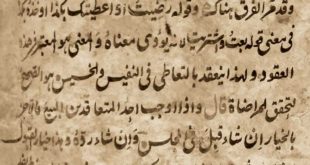 وقد مر الفرق هناك وقوله رضيت او اعطيتك بكذا او خذه بكذا
في معنى قوله بعت واشتريت لانه يؤدي معناه والمعنى هو المعتبر في هذه
العقود ولهذا ينعقد بالتعاطي في النفيس والخسيس هو الصحيح
لتحقق المراضاة قال واذا اوجب احد المتعاقدين البيع فالاخر
بالخيار ان شاء قبل في المجلس وان شاء رده وهذا خيار القبول